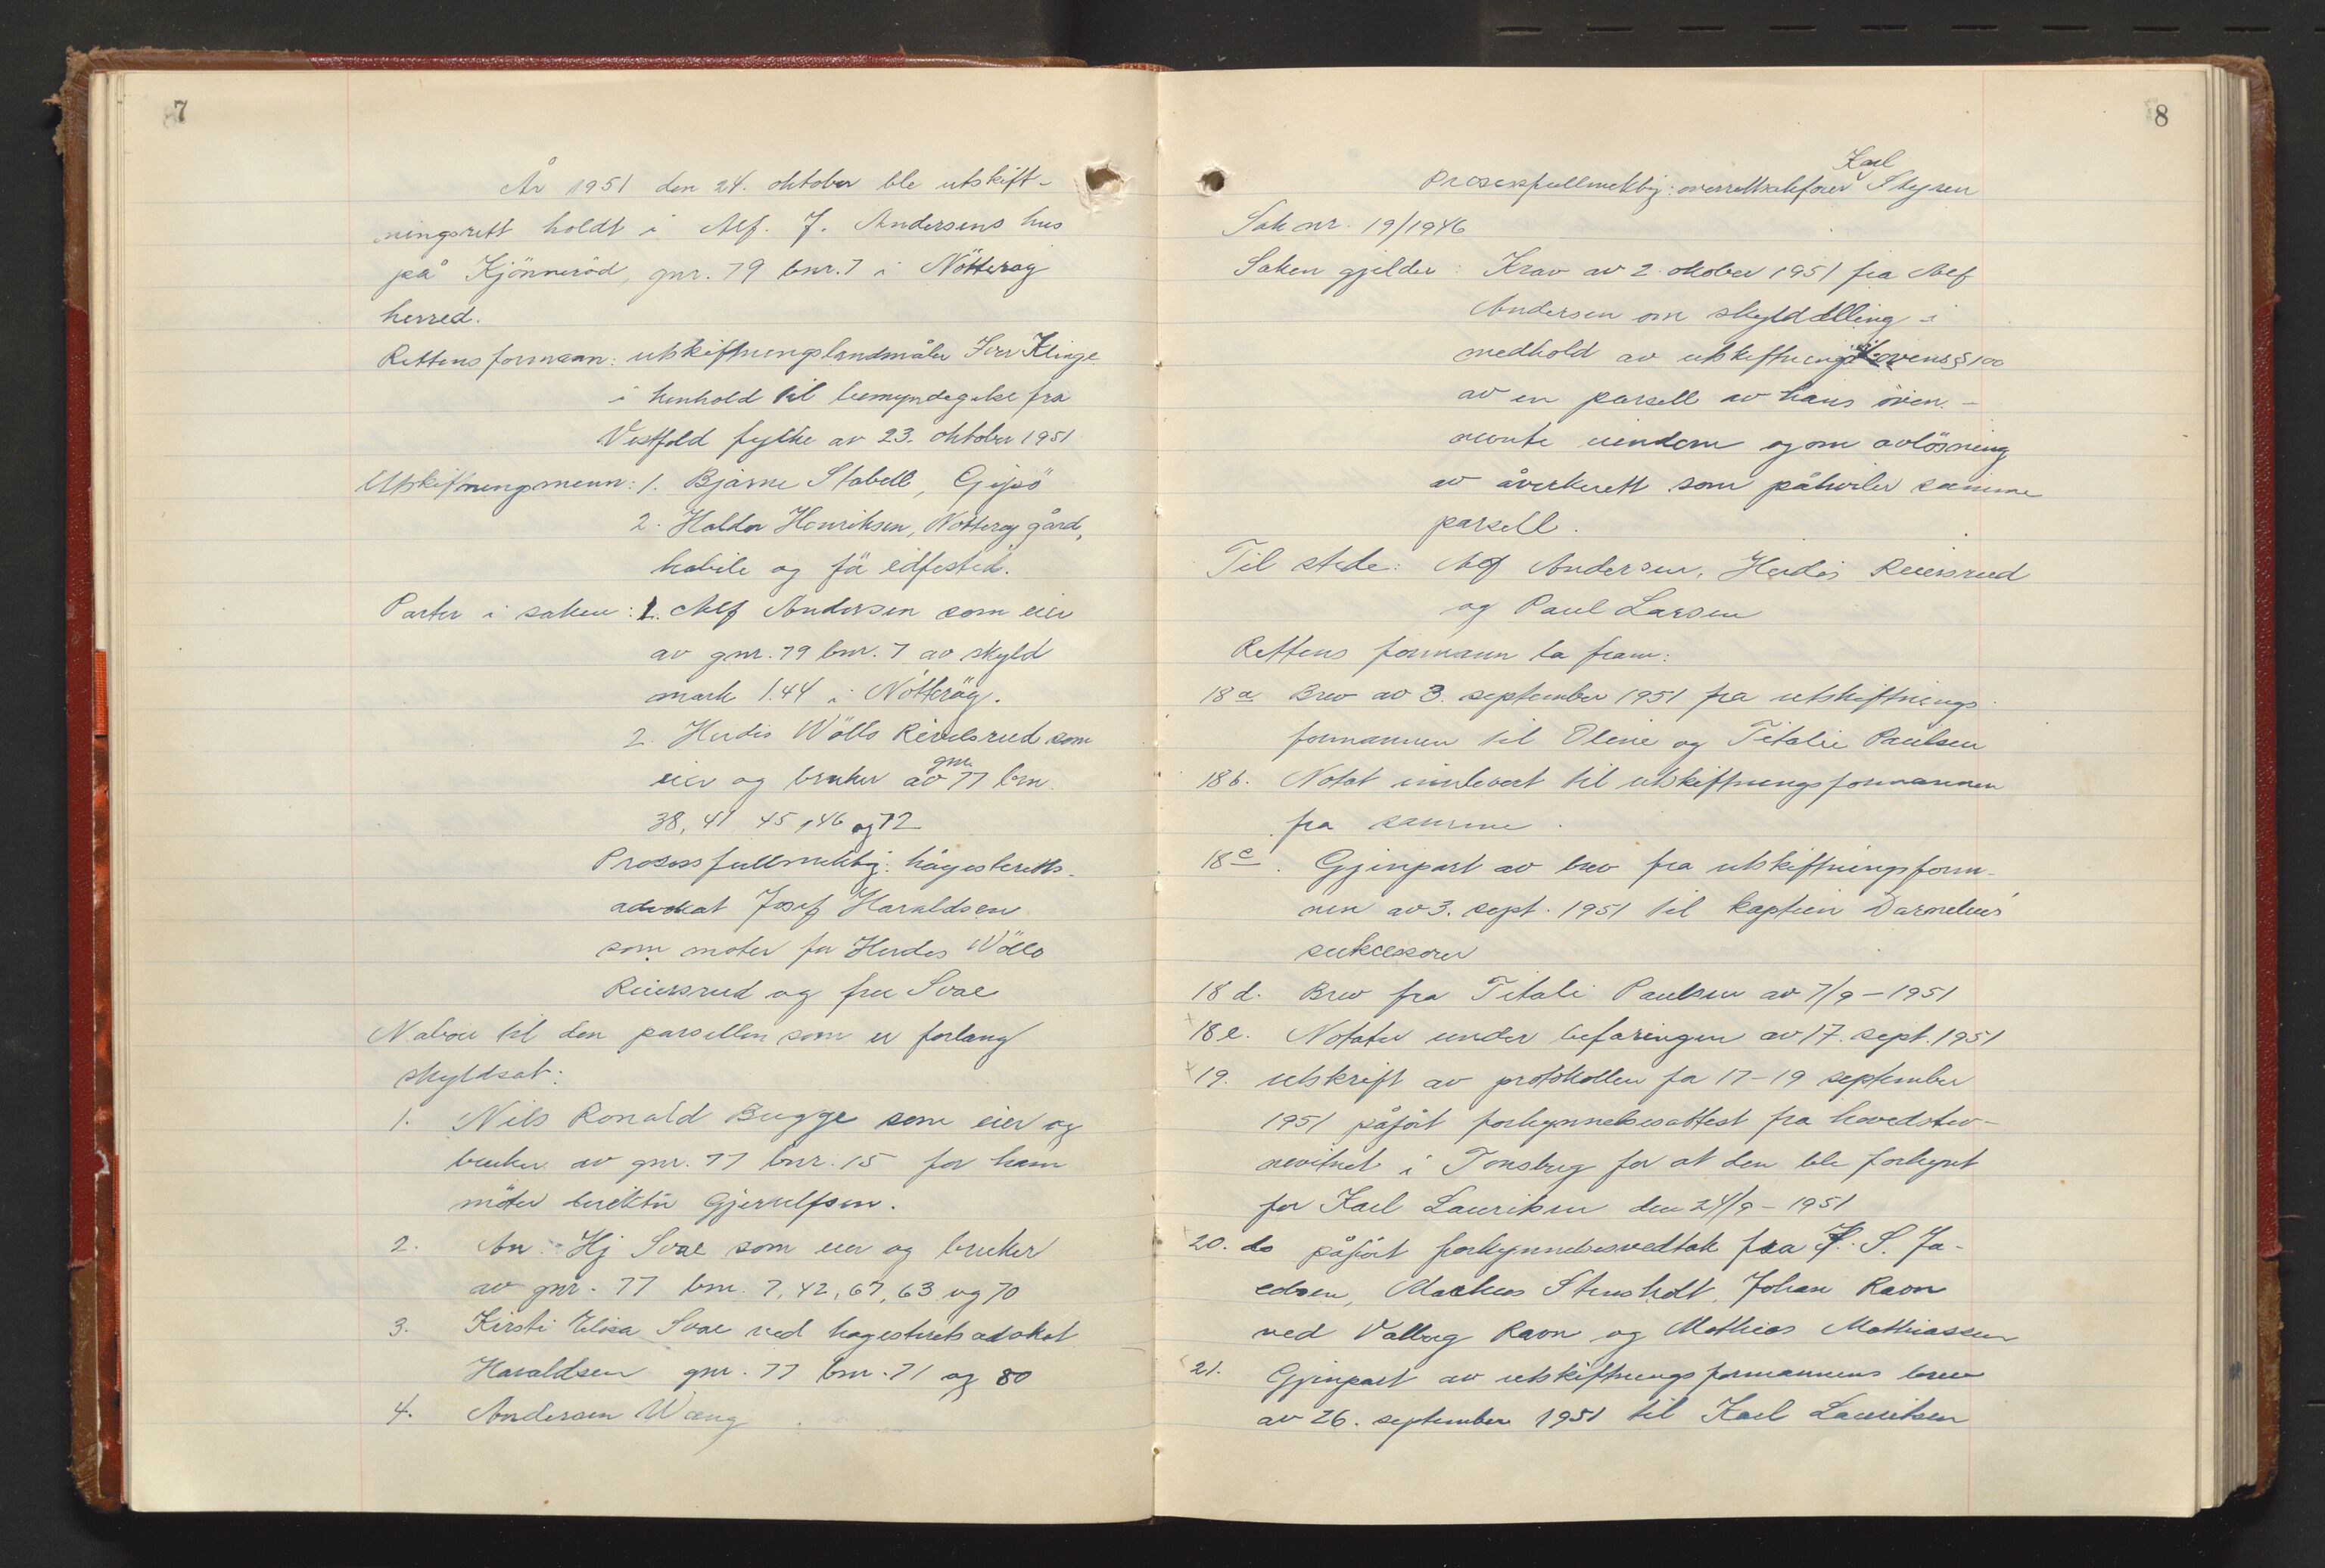 7
År 1951 den 24. oktober ble utskift-
ningsrett holdt i Alf. J. Andersens hus
på Kjønnerød, gnr. 79 bnr. 7 i Nøtterøy
herred.
Rettens formann: utskiftningslandmåler Iver Klinge
i henhold til bemyndigelse fra
Vestfold fylke av 23. oktober 1951
Utskiftningmenn: 1. Bjarne Stabell, Gipö
2. Haldor Henriksen, Nøtterøy gård,
habile og för eidfestet.
Parter i saken: 1. Alf Andersen som eier
av gnr. 79 bnr. 7 av skyld
mark 1.44 i Nötteröy.
2. Herdis Wöllo Reiersrud som
eier og bruker av gnr 77 bnr.
38, 41 45, 46 og 72
Prosessfullmektig: høyesteretts-
advokat Josef Haraldsen
som møter for Herdis Wöllo
Reiersrud og fru Svae
Naboer til den parsellen som er forlang
skyldsat:
1. Nils Ronald Bugge som eier og
bruker av gnr. 77 bnr. 15 for ham
möter direktör Gjerulfsen.
2. An Hj Svae som eier og bruker
av gnr. 77 bnr. 7, 42, 67, 63 og 70
3. Kirsti Elisa Svae ved høgesteretsadokat
Haraldsen gnr. 77 bnr. 71 og 80
4. Andersen Wang
8
Prosessfullmektig: overrettsakfører Karl Steyren
Sak nr. 19/1946
Saken gjelder: Krav av 2. okober 1951 fra Alf
Andersen om skylddelling i
medhold av utskiftningslovens § 100
av en parsell av hans öven-
nevnte eiendom og om avlösning
av åverkrett som påhviler samme
parsell.
Til stede: Alf Andersen, Herdis Reiersrud
og Paul Larsen
Rettens formann la fram:
18 a Brev av 3. september 1951 fra utskiftnings
formannen til Oline og Titalie Paulsen
18 b. Notat innlevert til utskiftningsformannen
fra samme.
18 c. Gjenpart av brev fra utskiftningsform-
nen av 3. sept. 1951 til kaptein Darnelius'
sukcessorer
18 d. Brev fra Titali Paulsen av 7/9 - 1951
18 e. Notater under befaringen av 17. sept. 1951
19. utskrift av protokollen fa 17-19 september
1951 påfört forkynnelsesattest fra hovedstev-
nevitnet i Tonsberg for at den ble forkynt
for Karl Lauritsen den 24/9 - 1951
20. do påfört forkynnelsesvedtak fra S. Ja-
cobsen, Markus Stensholt, Johan Ravn
ved Valborg Ravn og Mathias Mathiassen
21. Gjenpart av utskiftningsformannens brev
av 26. september 1951 til Karl Lauritsen